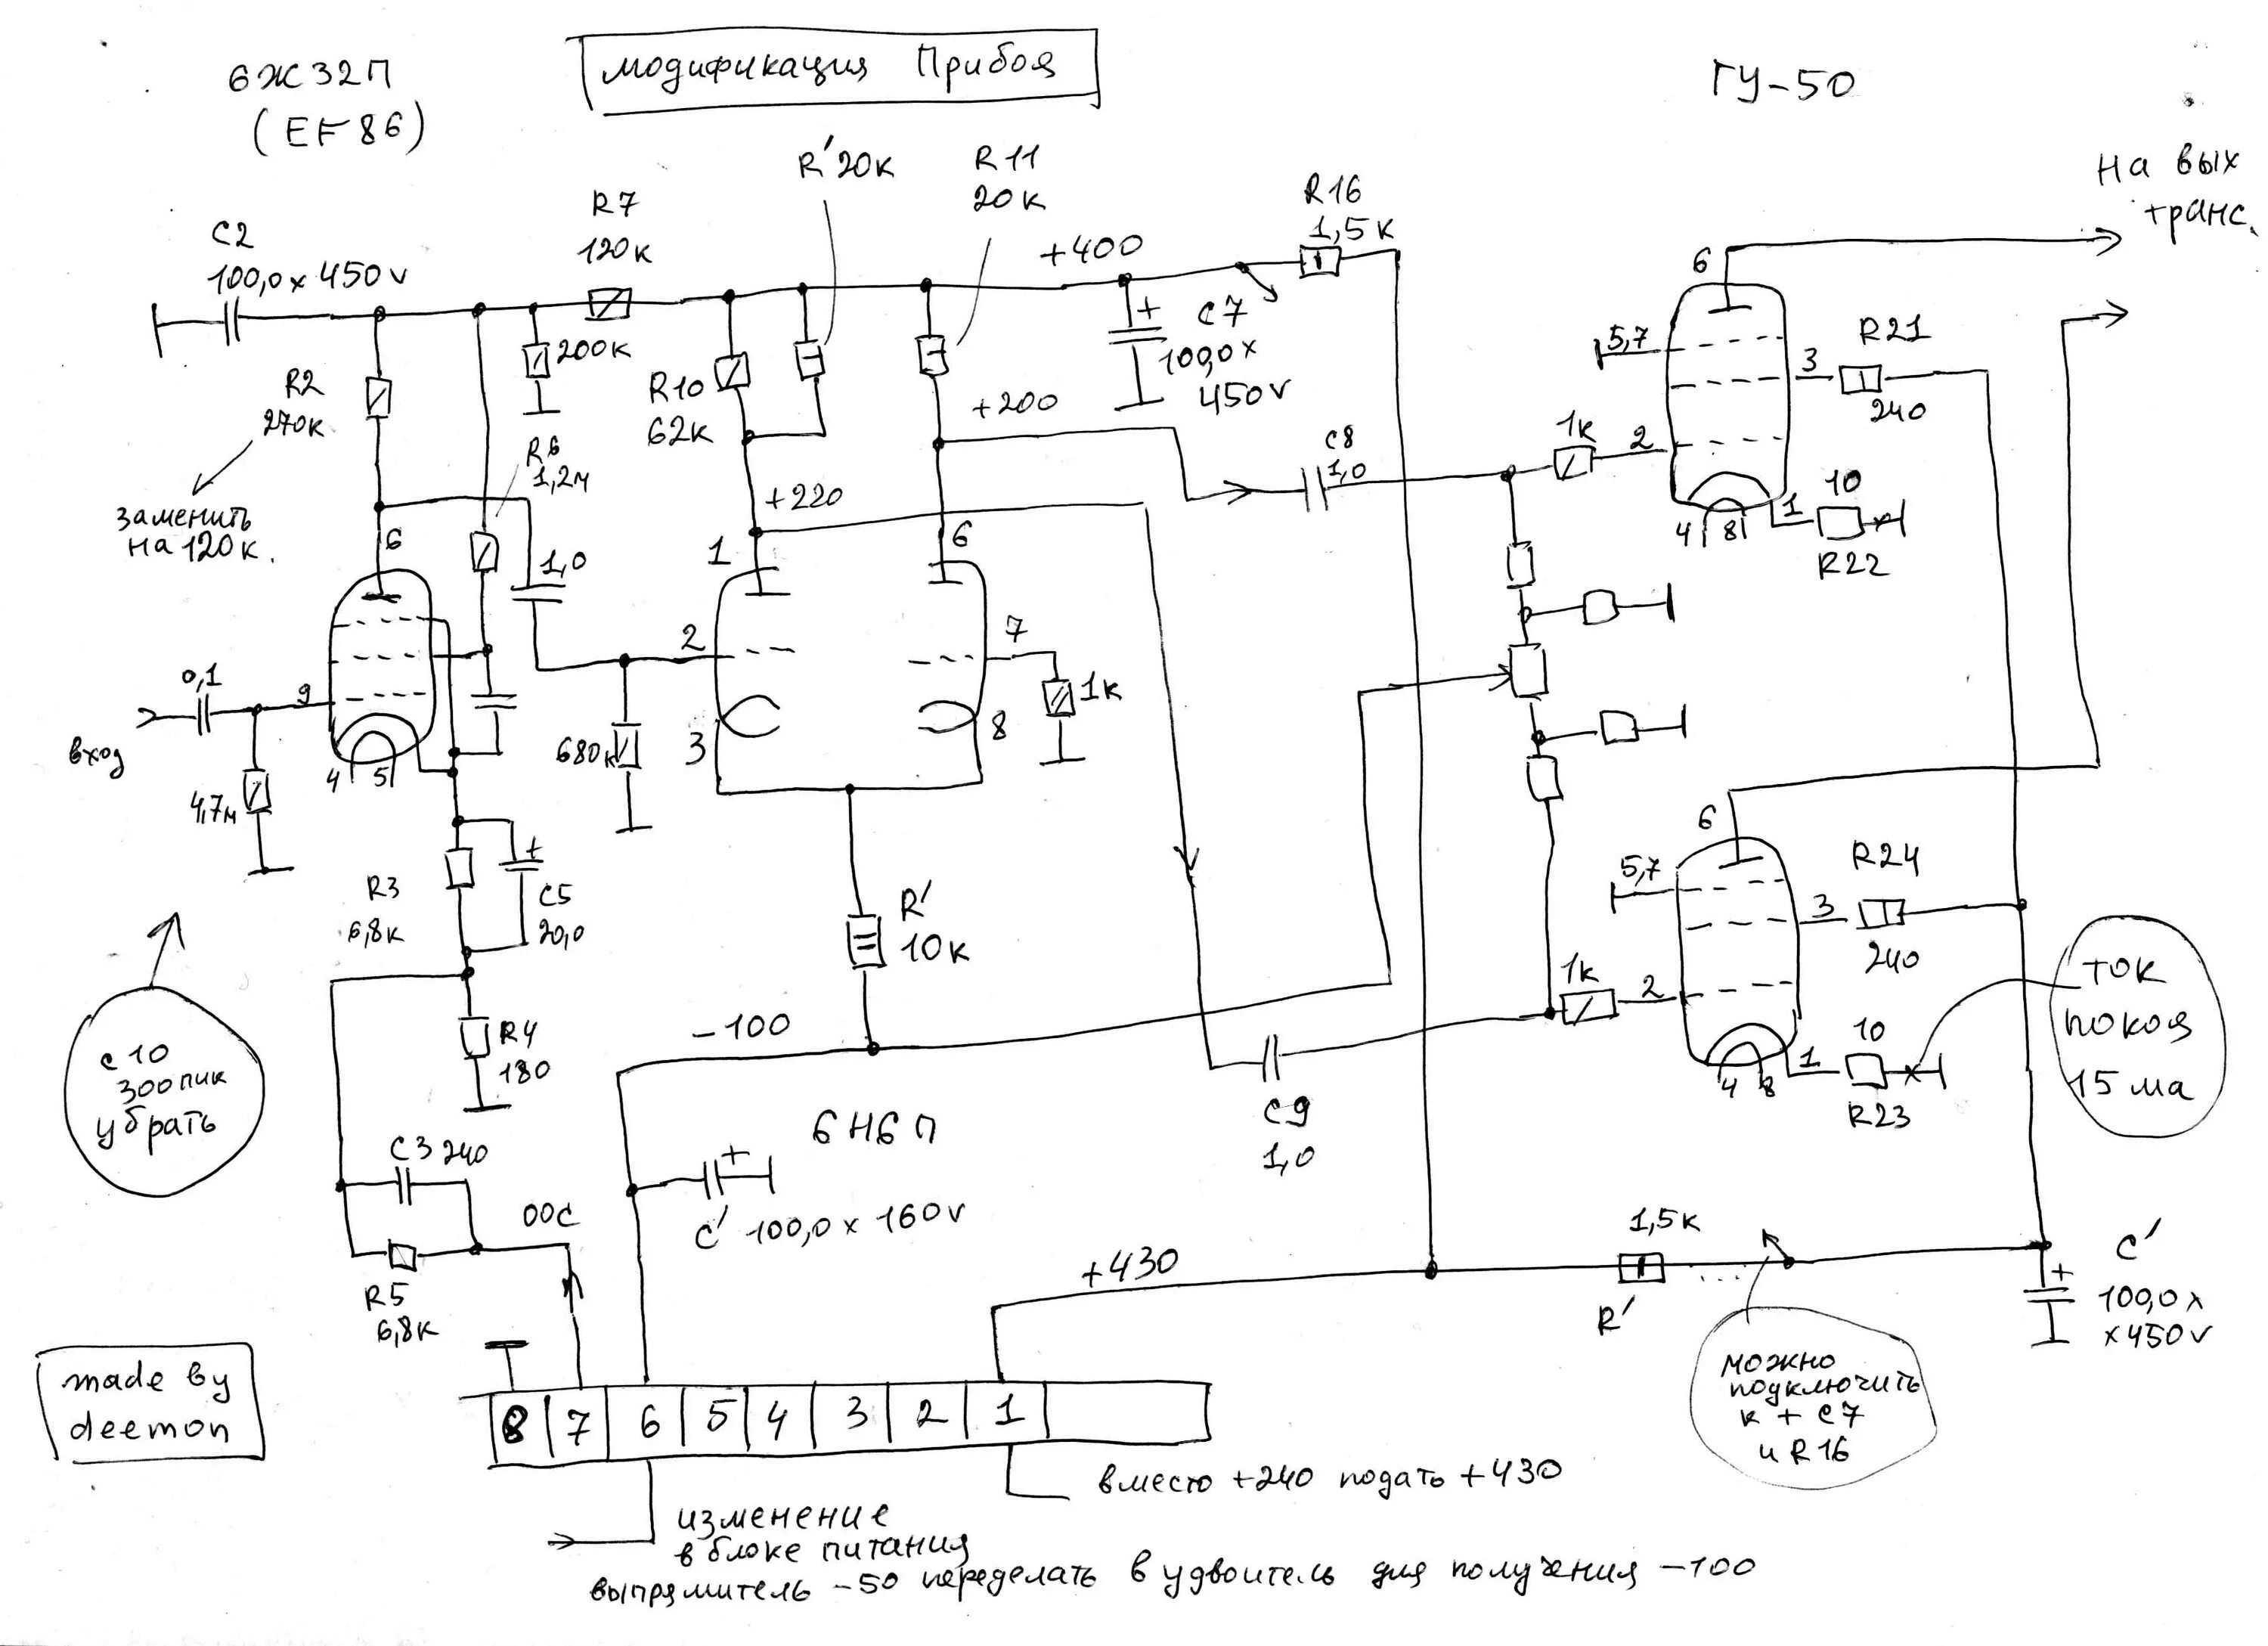 6Ж32П
(EF86)
модификация Прибоя
ГУ-50
На вых
транс.
C2
100,0 x 450v
R7
120к
R'20к
R11
20к
+400
R16
1,5к
C7
100,0 x
450v
R2
270к
заменить
на 120к.
200к
R10
62к
+200
R6
1,2м
+220
C8
1,0
1к
2
6
5,7
3
R21
240
10
1
4
8
R22
6
1,0
1
6
2
7
1к
3
8
680к
0,1
9
вход
4
5
4,7м
R3
6,8к
+
C5
20,0
R'
10к
-100
R4
180
C10
300пик
убрать
C3 240
ООС
R5
6,8к
6Н6П
+
C' 100,0 x 160v
C9
1,0
6
5,7
3
R24
240
1к
2
10
1
4
8
R23
ток
покоя
15 ма
+430
1,5к
R'
C'
+
100,0 x
x 450v
можно
подключить
к + C7
и R16
made by
deemon
8 7 6 5 4 3 2 1
вместо +240 подать +430
изменение
в блоке питания
выпрямитель -50 переделать в удвоитель для получения -100